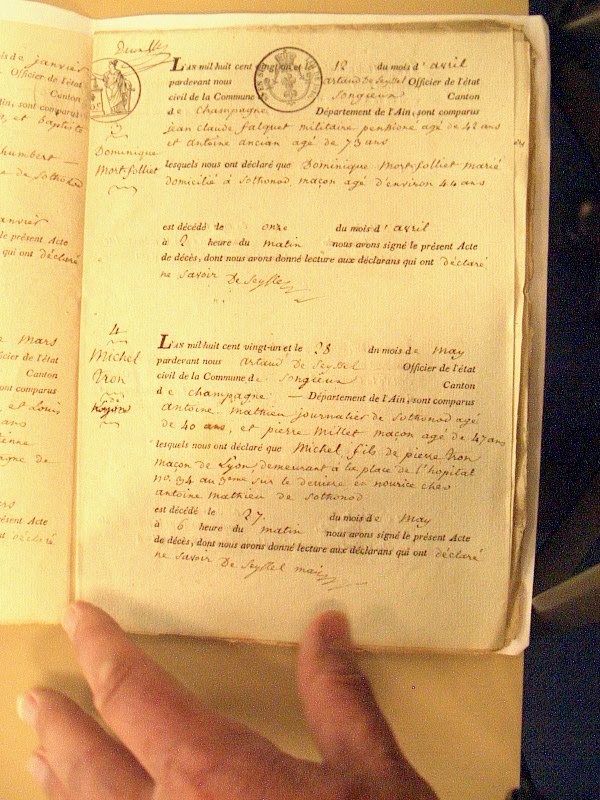 is de janvier
Officier de l'état
Canton
in, sont comparus
et baptiste
humbert —
e de Sothonod
anvier
le présent Acte
qui ont déclaré
e Mars
icier de l'état
Canton
ont comparus
, et Louis
ans
ienne
agne de
ars
ésent Acte
nt déclaré
L'AN mil huit cent vingt-un et le 12 du mois d'avril
pardevant nous artaud de Seyssel Officier de l'état
civil de la Commune Songieux Canton
de champagne Département de l'Ain, sont comparus
jean claude falquet militaire pensioné agé de 42 ans
et antoine ancian agé de 73 ans
3
Dominique
Mortfolliet
lesquels nous ont déclaré que Dominique Mortfolliet marié
domicilié à Sothonod, maçon agé d'environ 44 ans
est décédé le onze du mois d'avril
à 2 heure du matin nous avons signé le présent Acte
de décès, dont nous avons donné lecture aux déclarans qui ont déclaré
ne savoir De Seyssel
4
Michel
Tron
de
Lyon
L'AN mil huit cent vingt-un et le 28 du mois de may
pardevant nous artaud de Seyssel Officier de l'état
civil de la Commune de Songieux Canton
de champagne — Département de l'Ain, sont comparus
antoine mathieu journalier de Sothonod agé
de 40 ans, et pierre Millet maçon agé de 47 ans
lesquels nous ont déclaré que Michel, fils de pierre Tron
maçon de Lyon, demeurant à la place de l'hopital
no. 34 au 3eme sur le derriere en nourice ches
antoine mathieu de Sothonod
est décédé le 27. du mois de may
à 6 heure du matin nous avons signé le présent Acte
de décès, dont nous avons donné lecture aux déclarans qui ont déclaré
ne savoir De Seyssel maire